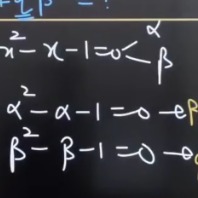 β = ?
x² - x - 1 = 0 < α
β
α² - α - 1 = 0 → β
β² - β - 1 = 0 →